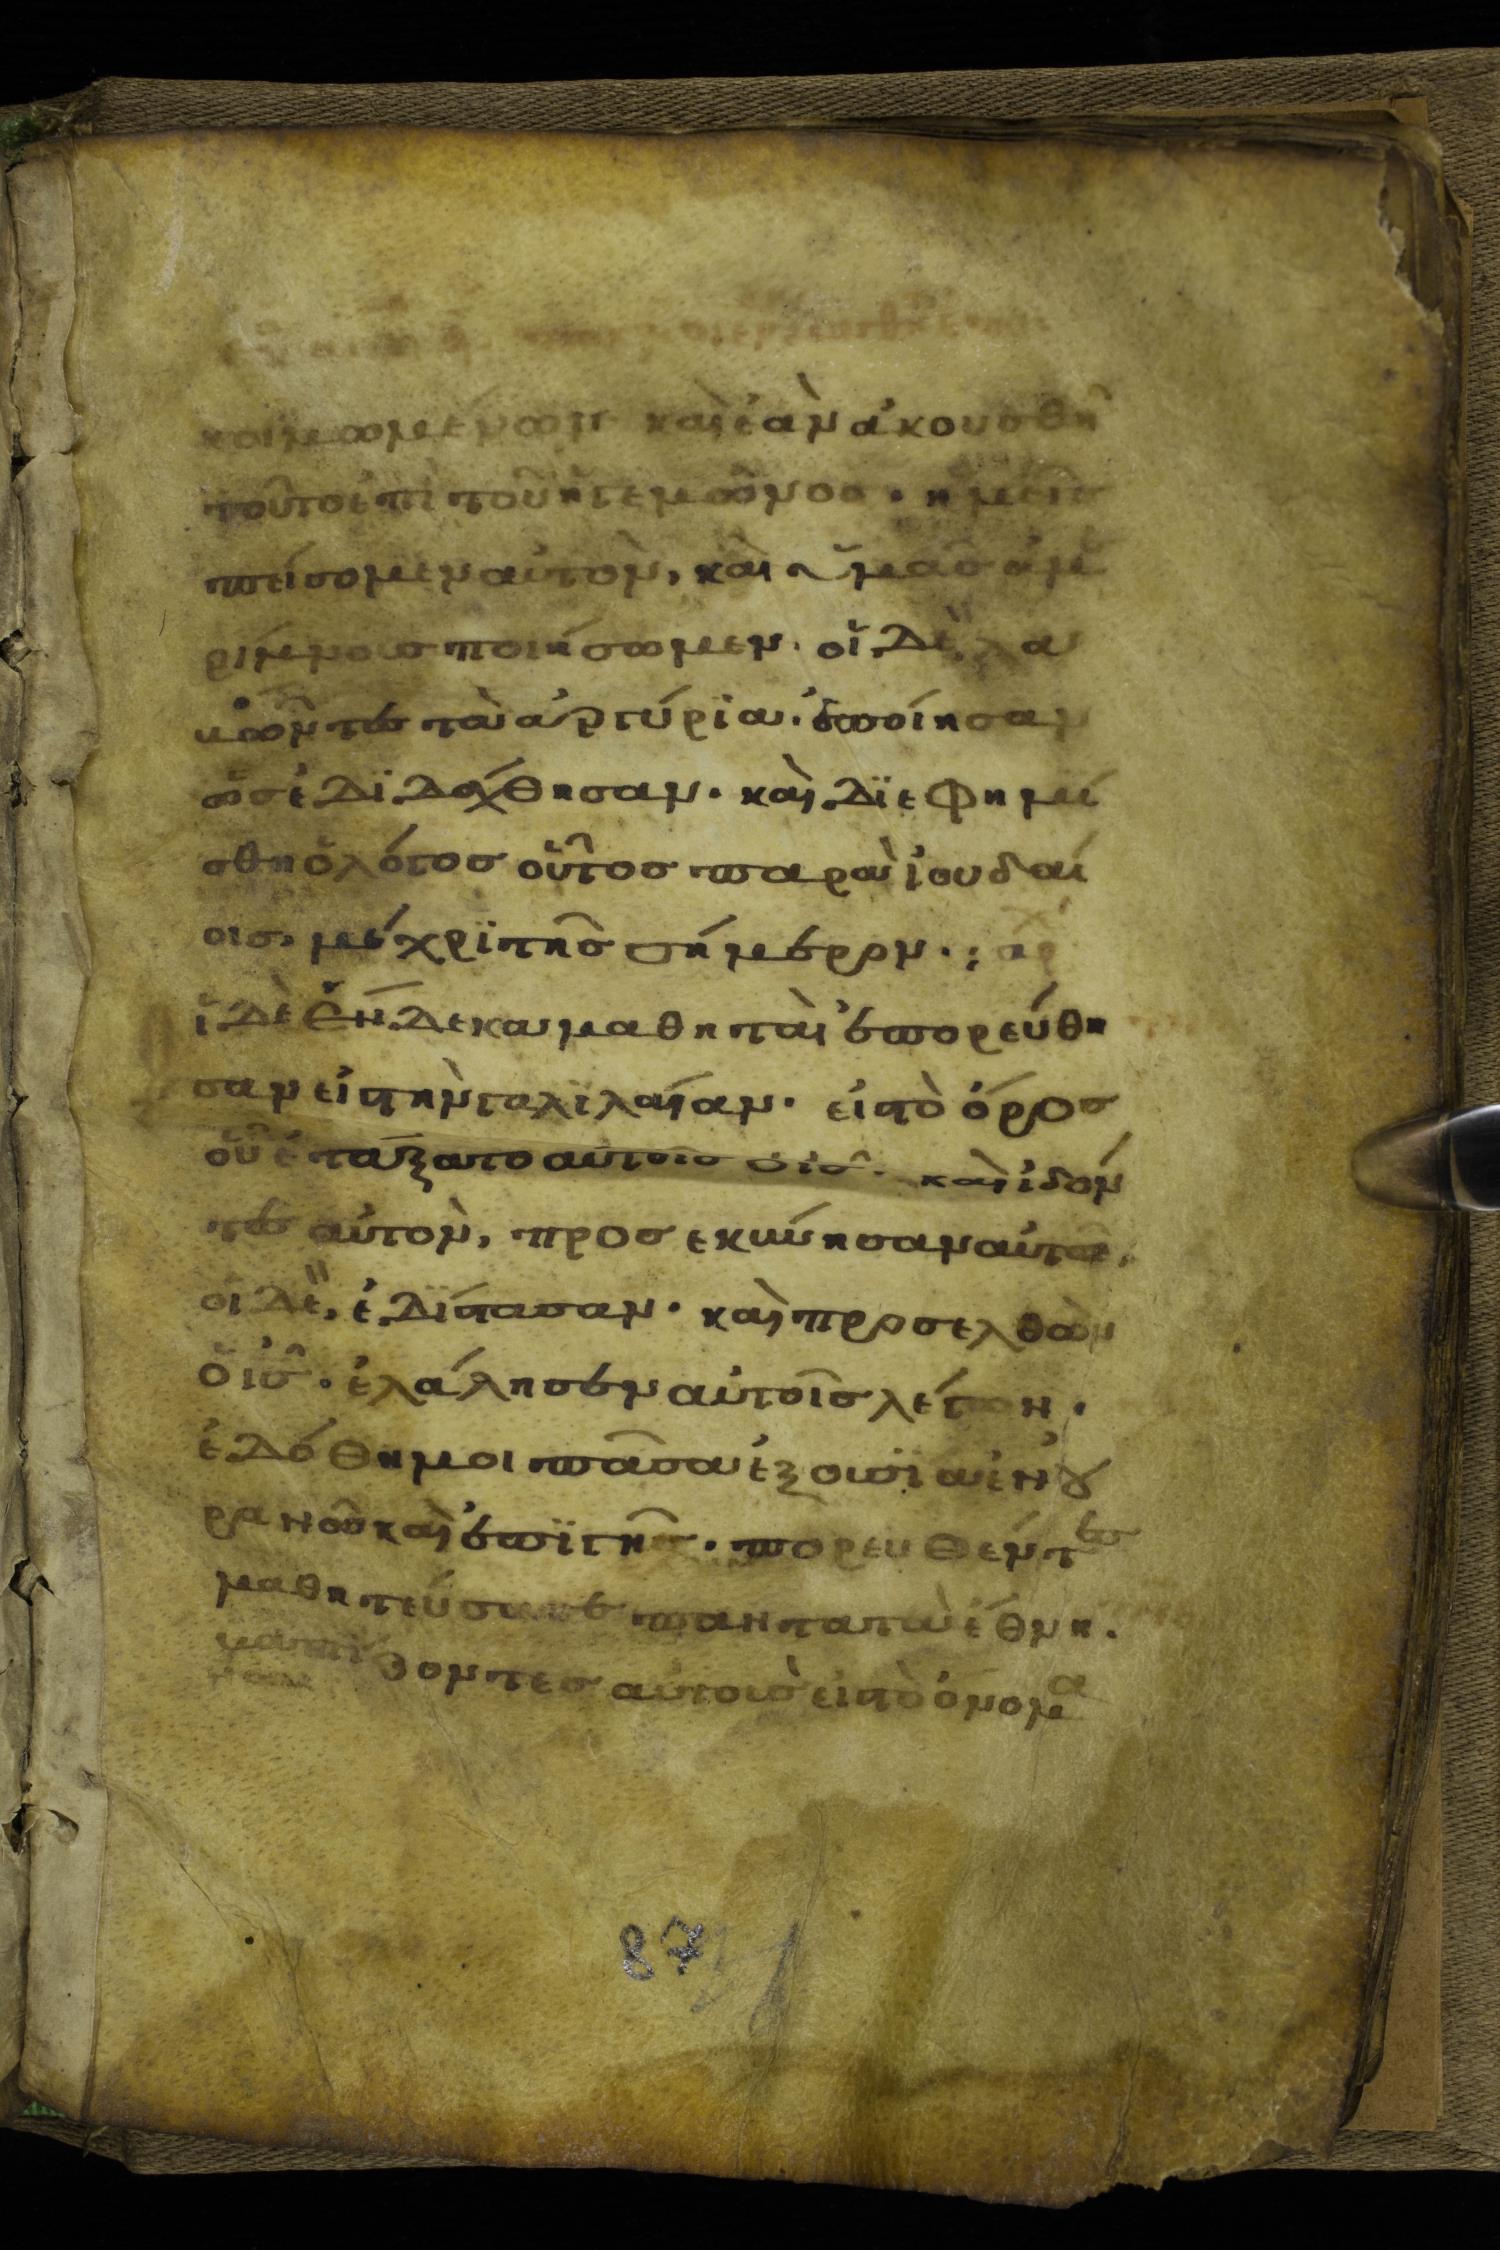 κοιμωμένων καὶ ἐὰν ἀκουσθῆ
τοῦτο ἐπὶ τοῦ ἡγεμῶνος · ἡμεῖς
πείσομεν αὐτὸν, καὶ ὑμᾶς ἀμε
ρίμνους ποιήσωμεν · οἱ δὲ λα
βῶντες τὰ ἀργύρϊα · ἐποίησαν
ὡς ἐδϊδάχθησαν · καὶ δϊεφημί
σθη ὁ λόγος οὗτος παρὰ ἰουδαί
οις, μέχρϊ τῆς σήμερον · :
ἱ δὲ ἕνδεκα μαθηταὶ ἐπορεύθη
σαν εἰ τὴν γαλϊλαίαν · εἰ τὸ ὄρος
οὗ ἐτάξατο αὐτοῖς ὁ ἰς · καὶ ἰδόν
τες αὐτὸν, προσεκύνησαν αὐτῶ,
οἱ δὲ, ἐδΐστασαν · καὶ προσελθὼν
ὁ ἰς · ἐλάλησεν αὐτοῖς λέγων ·
ἐδόθη μοι πᾶσα ἐξουσϊα ἐν οὐ
ρανοῦ καὶ ἐπϊ γῆς · πορευθέντες
μαθητεύσατε πάντα τὰ ἔθνη ·
βαπτίζοντες αὐτοὺς εἰ τὸ ὄνομα
87